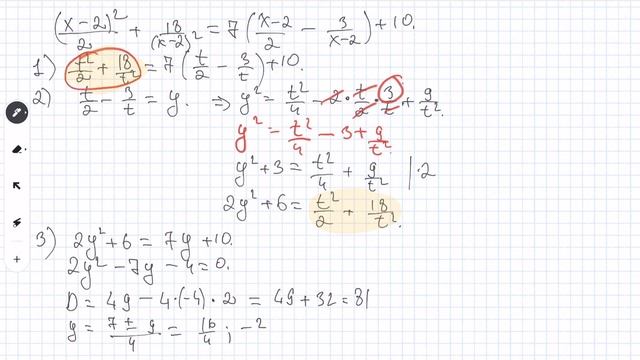 (x-2)²/2 + 18/(x-2)² = 7(x-2/2 - 3/x-2) + 10.
1) t²/2 + 18/t² = 7(t/2 - 3/t) + 10.
2) t/2 - 3/t = y. ⇒ y² = t²/4 - 2·t/2·3/t + 9/t².
y² = t²/4 - 3 + 9/t²
y² + 3 = t²/4 + 9/t² |·2
2y² + 6 = t²/2 + 18/t².
3) 2y² + 6 = 7y + 10.
2y² - 7y - 4 = 0.
D = 49 - 4·(-4)·2 = 49 + 32 = 81
y = 7 ± 9/4 = 16/4 ; -2